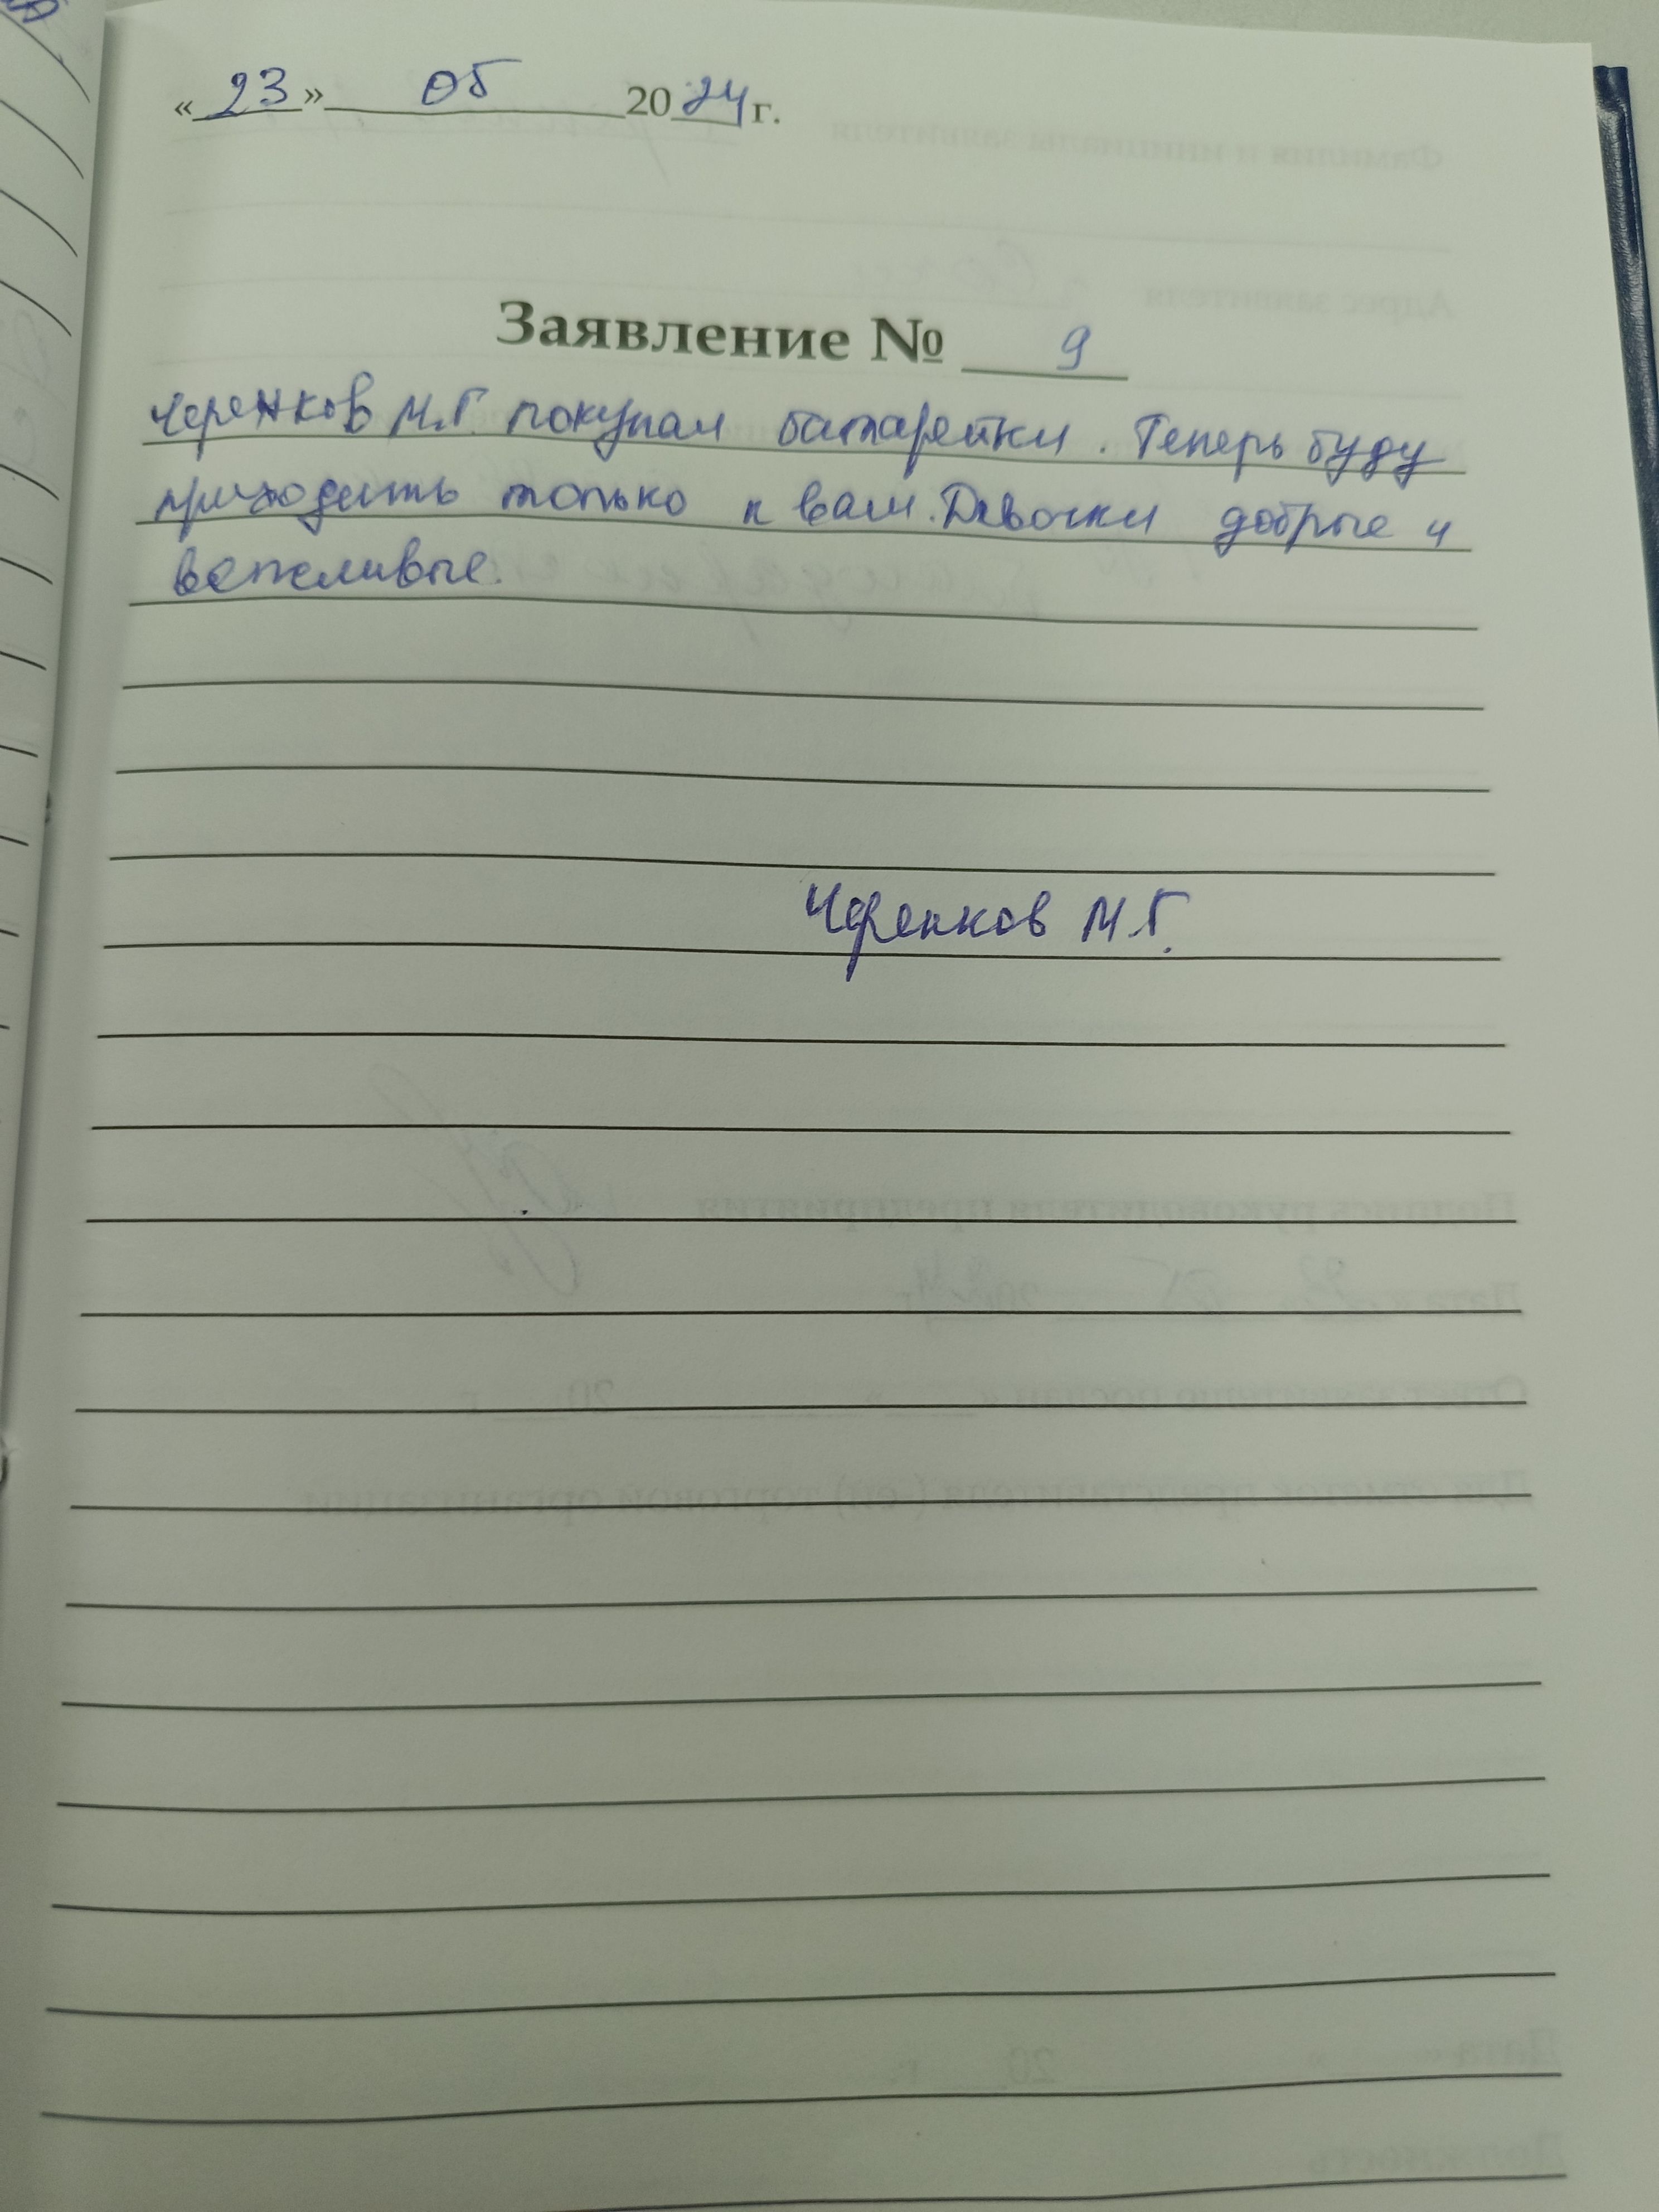 «23» 05 2024 г.
Заявление № 9
Черенков М.Г. покупал батарейки. Теперь буду
приходить только к вам. Девочки добрые и
вежливые.
Черенков М.Г.